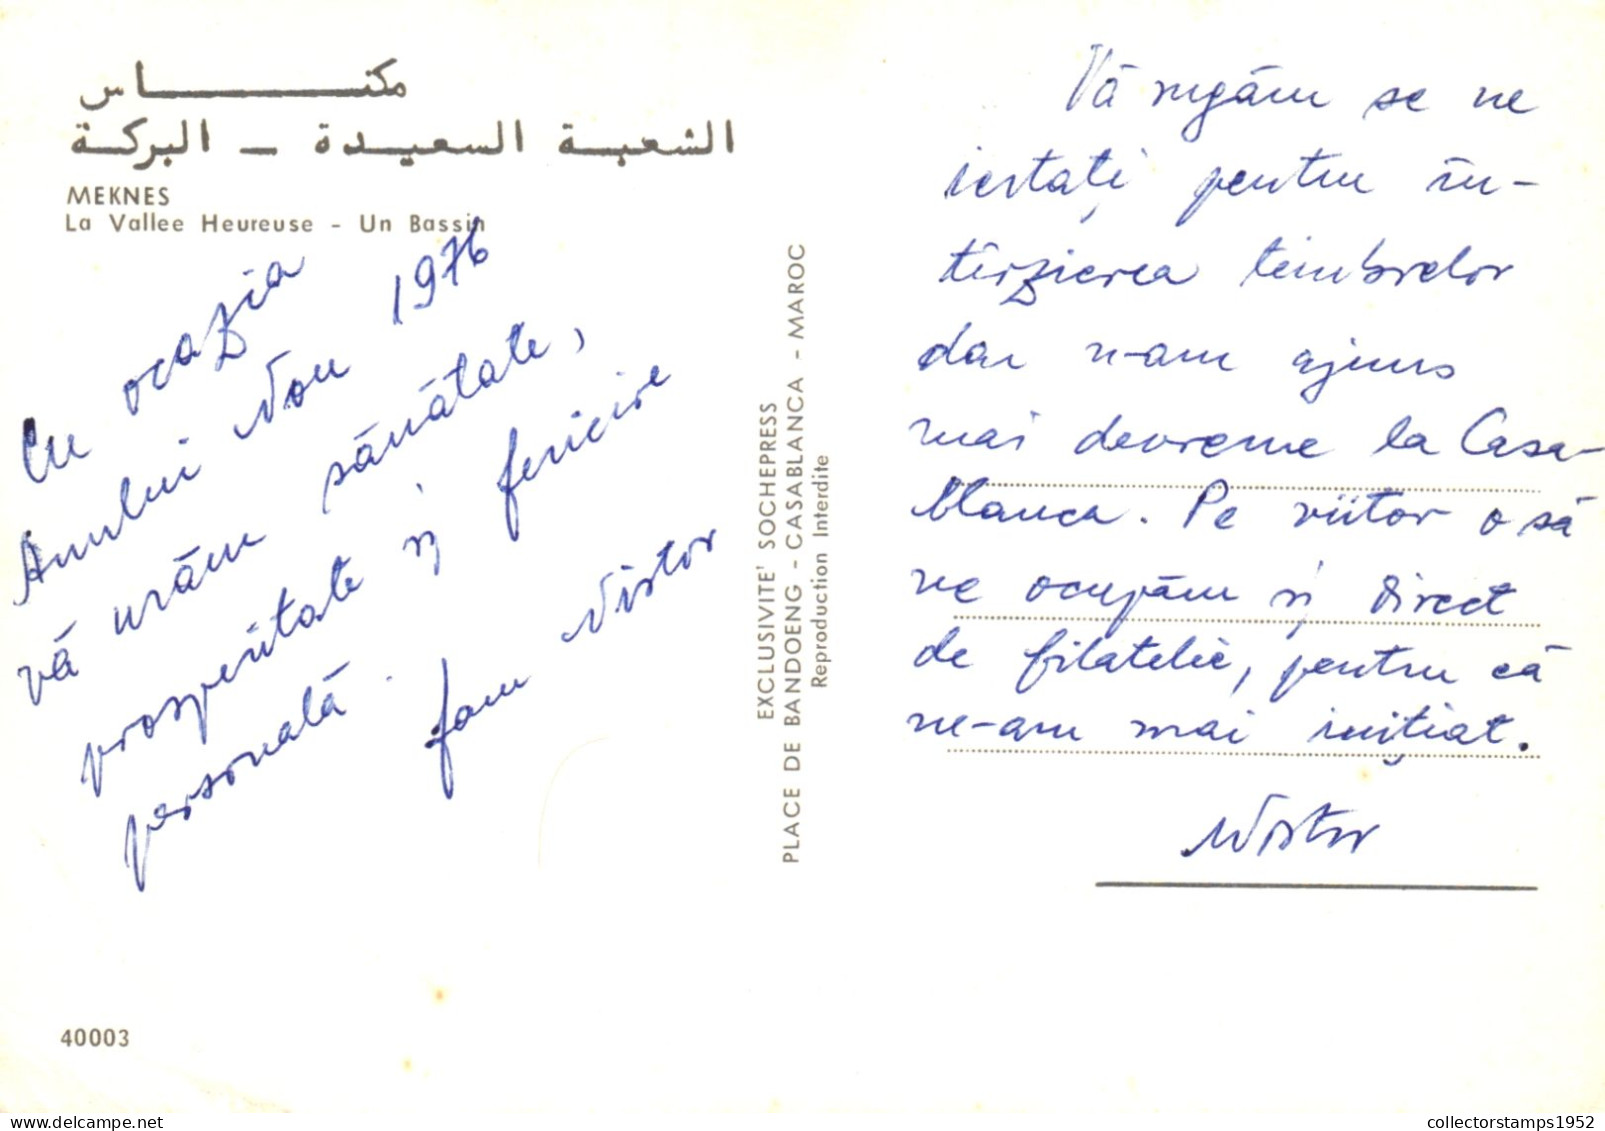 مكنـــــاس
الشعبة السعيدة - البركة
MEKNES
La Vallee Heureuse - Un Bassin
Cu ocazia
Anului Nou 1976
vă urăm sănătate,
prosperitate și fericire
personală.
fam Nistor
40003
EXCLUSIVITE' SOCHEPRESS
PLACE DE BANDOENG - CASABLANCA - MAROC
Reproduction Interdite
Vă rugăm se ne
iertați pentru în-
tîrzierea timbrelor
dar n-am ajuns
mai devreme la Casa-
blanca. Pe viitor o să
ne ocupăm și direct
de filatelie, pentru că
ne-am mai inițiat.
Nistor
collectorstamps1952